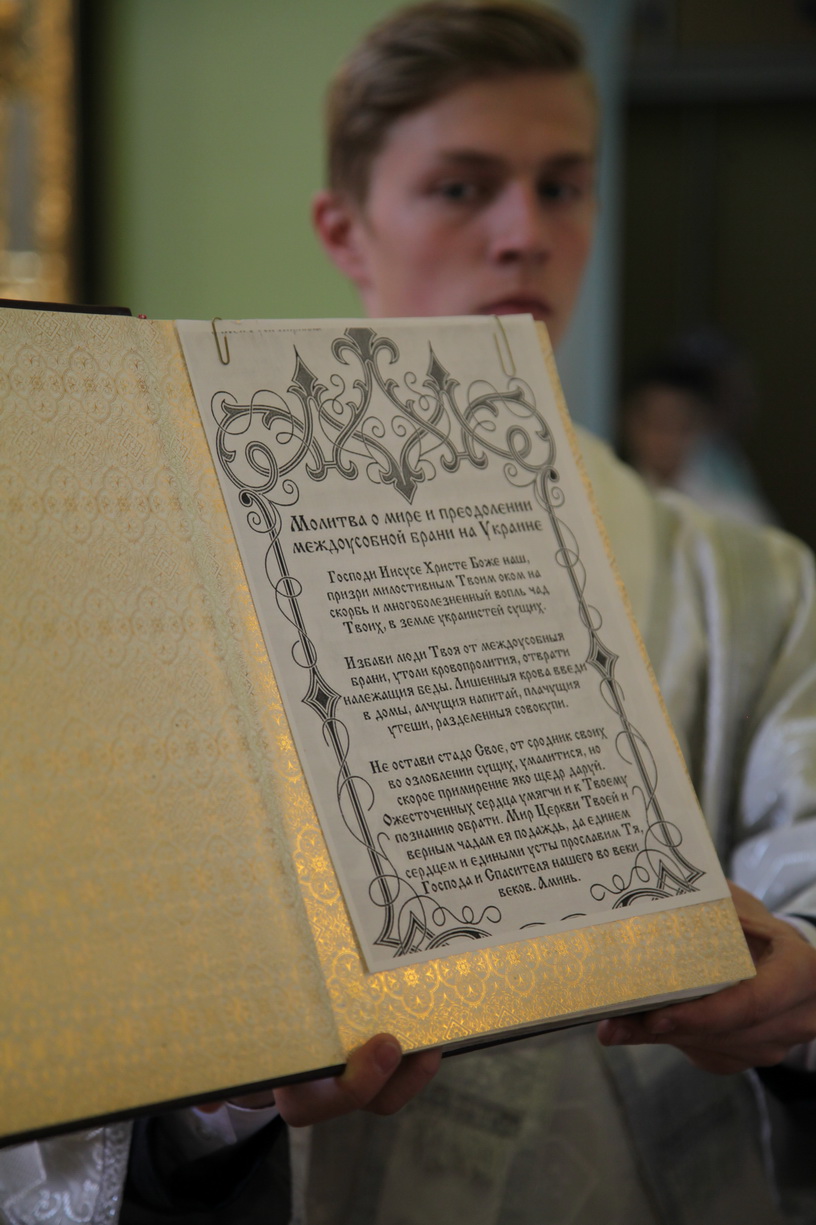 Молитва о мире и преодолении
междоусобной брани на Украине
Господи Иисусе Христе Боже наш,
призри милостивным Твоим оком на
скорбь и многоболезненный вопль чад
Твоих, в земле украинстей сущих.
Избави люди Твоя от междоусобныя
брани, утоли кровопролития, отврати
належащия беды. Лишенныя крова введи
в домы, алчущия напитай, плачущия
утеши, разделенныя совокупи.
Не остави стадо Свое, от сродник своих
во озлоблении сущих, умалитися, но
скорое примирение яко щедр даруй.
Ожесточенных сердца умягчи и к Твоему
познанию обрати. Мир Церкви Твоей и
верным чадам ея подаждь, да единем
сердцем и едиными усты прославим Тя,
Господа и Спасителя нашего во веки
веков. Аминь.